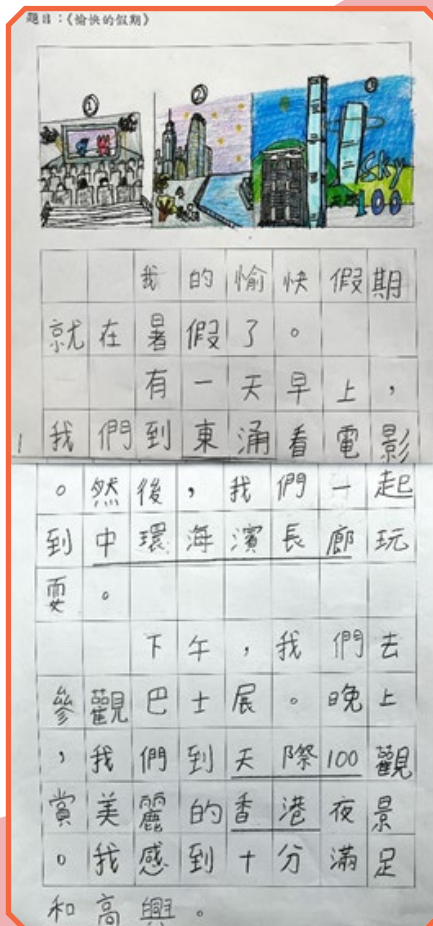 題目:《愉快的假期》
① ② ③
Sky
100
我的愉快假期
就在暑假了。
有一天早上,
1
我們到東涌看電影
。然後,我們一起
到中環海濱長廊玩
耍。
下午,我們去
參觀巴士展。晚上
,我們到天際100觀
賞美麗的香港夜景
。我感到十分滿足
和高興。